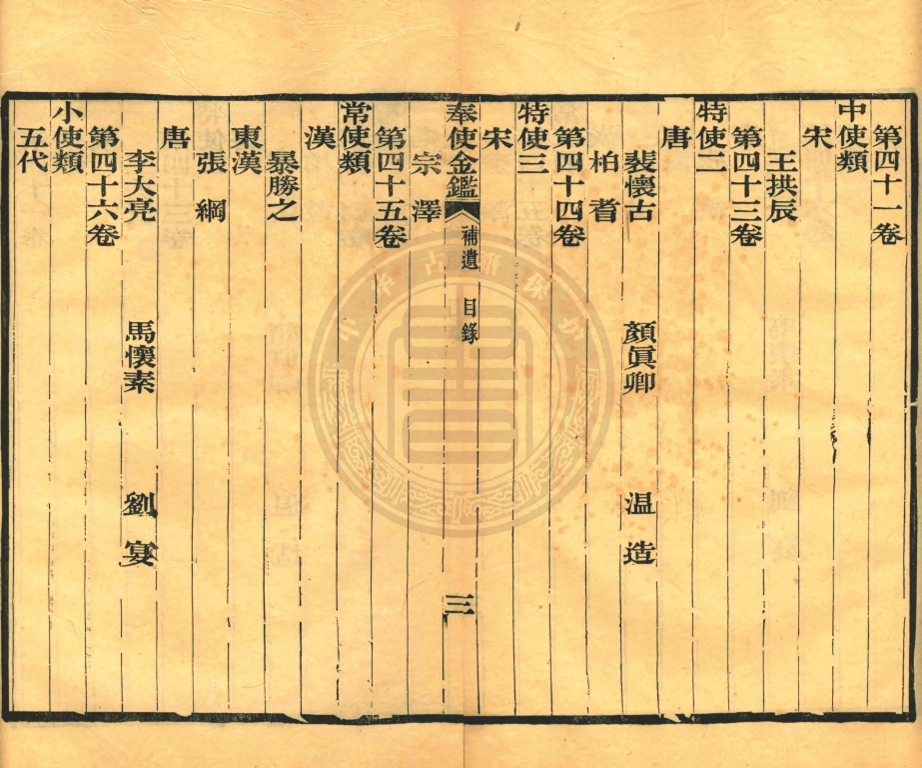 第四十一卷
中使類
宋
王拱辰
第四十三卷
特使二
唐
裴懷古 顏眞卿 温造
柏耆
第四十四卷
特使三
宋
奉使金鑑 補遺 目錄 三
宗澤
第四十五卷
常使類
漢
暴勝之
東漢
張綱
唐
李大亮 馬懷素 劉宴
第四十六卷
小使類
五代